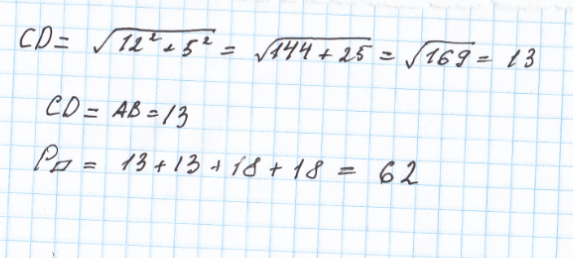 CD = √12² + 5² = √144 + 25 = √169 = 13
CD = AB = 13
P▱ = 13 + 13 + 18 + 18 = 62